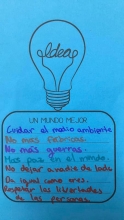 Ideas
UN MUNDO MEJOR
Cuidar el medio ambiente
No mas fabricas.
No mas guerras.
Mas paz en el mundo.
No dejar a nadie de lado
Da igual como eres.
Respetar las libertades
de las personas